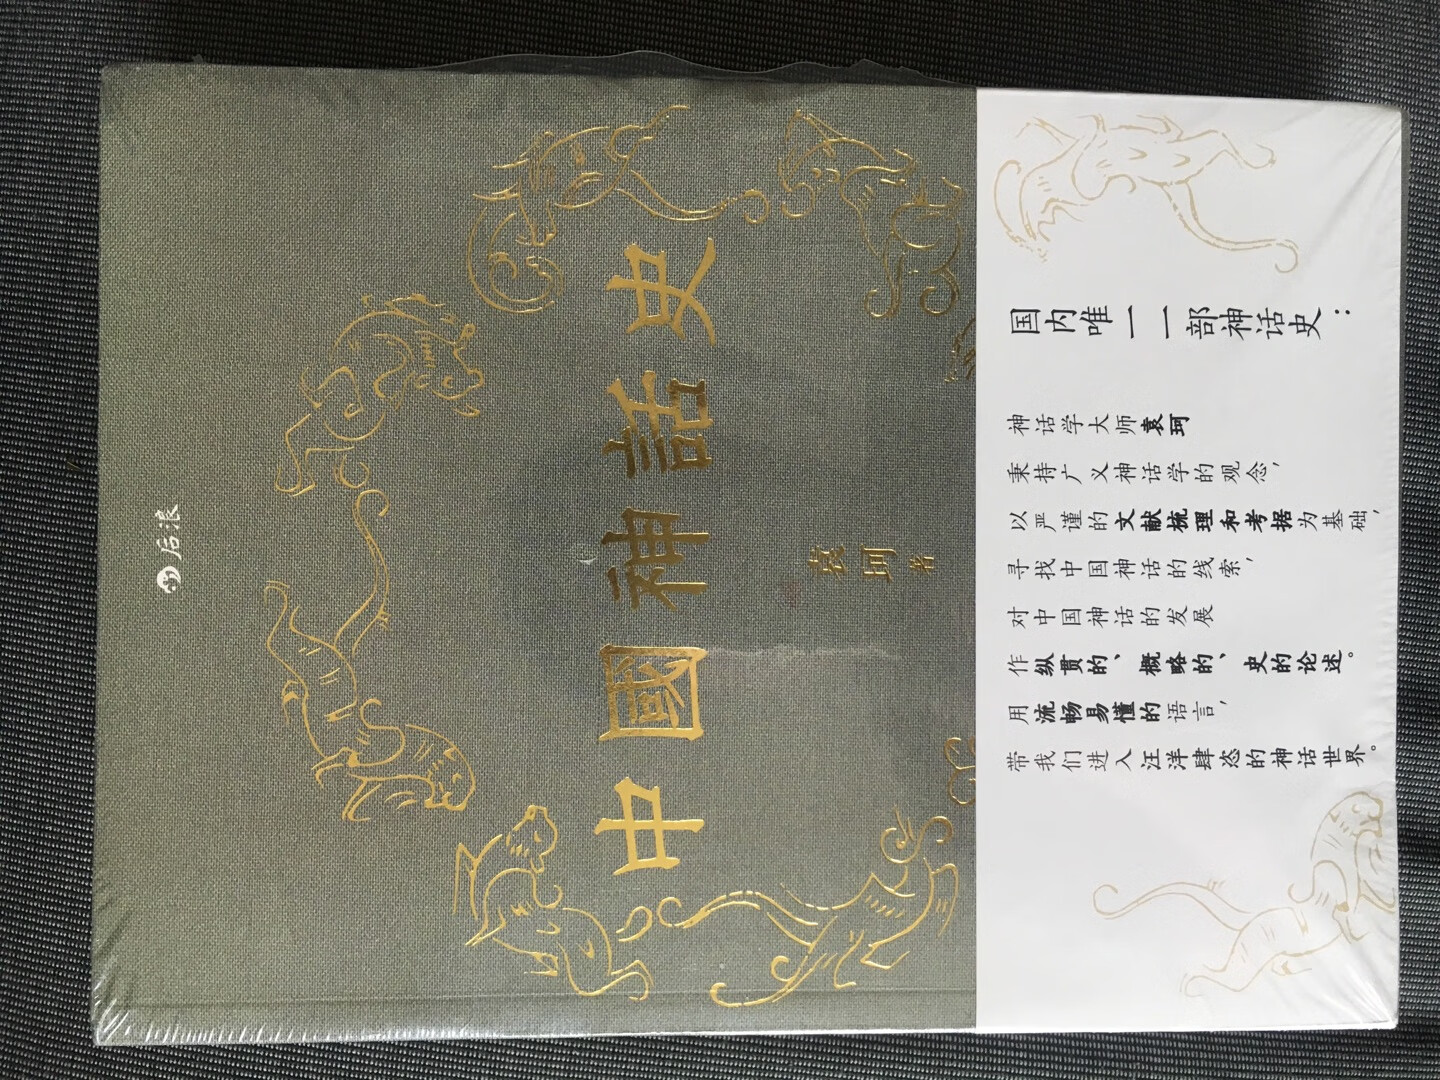 后浪
中國神話史
袁珂 著
国内唯一一部神话史：
神话学大师袁珂
秉持广义神话学的观念，
以严谨的文献梳理和考据为基础，
寻找中国神话的线索，
对中国神话的发展
作纵贯的、概略的、史的论述。
用流畅易懂的语言，
带我们进入汪洋肆恣的神话世界。